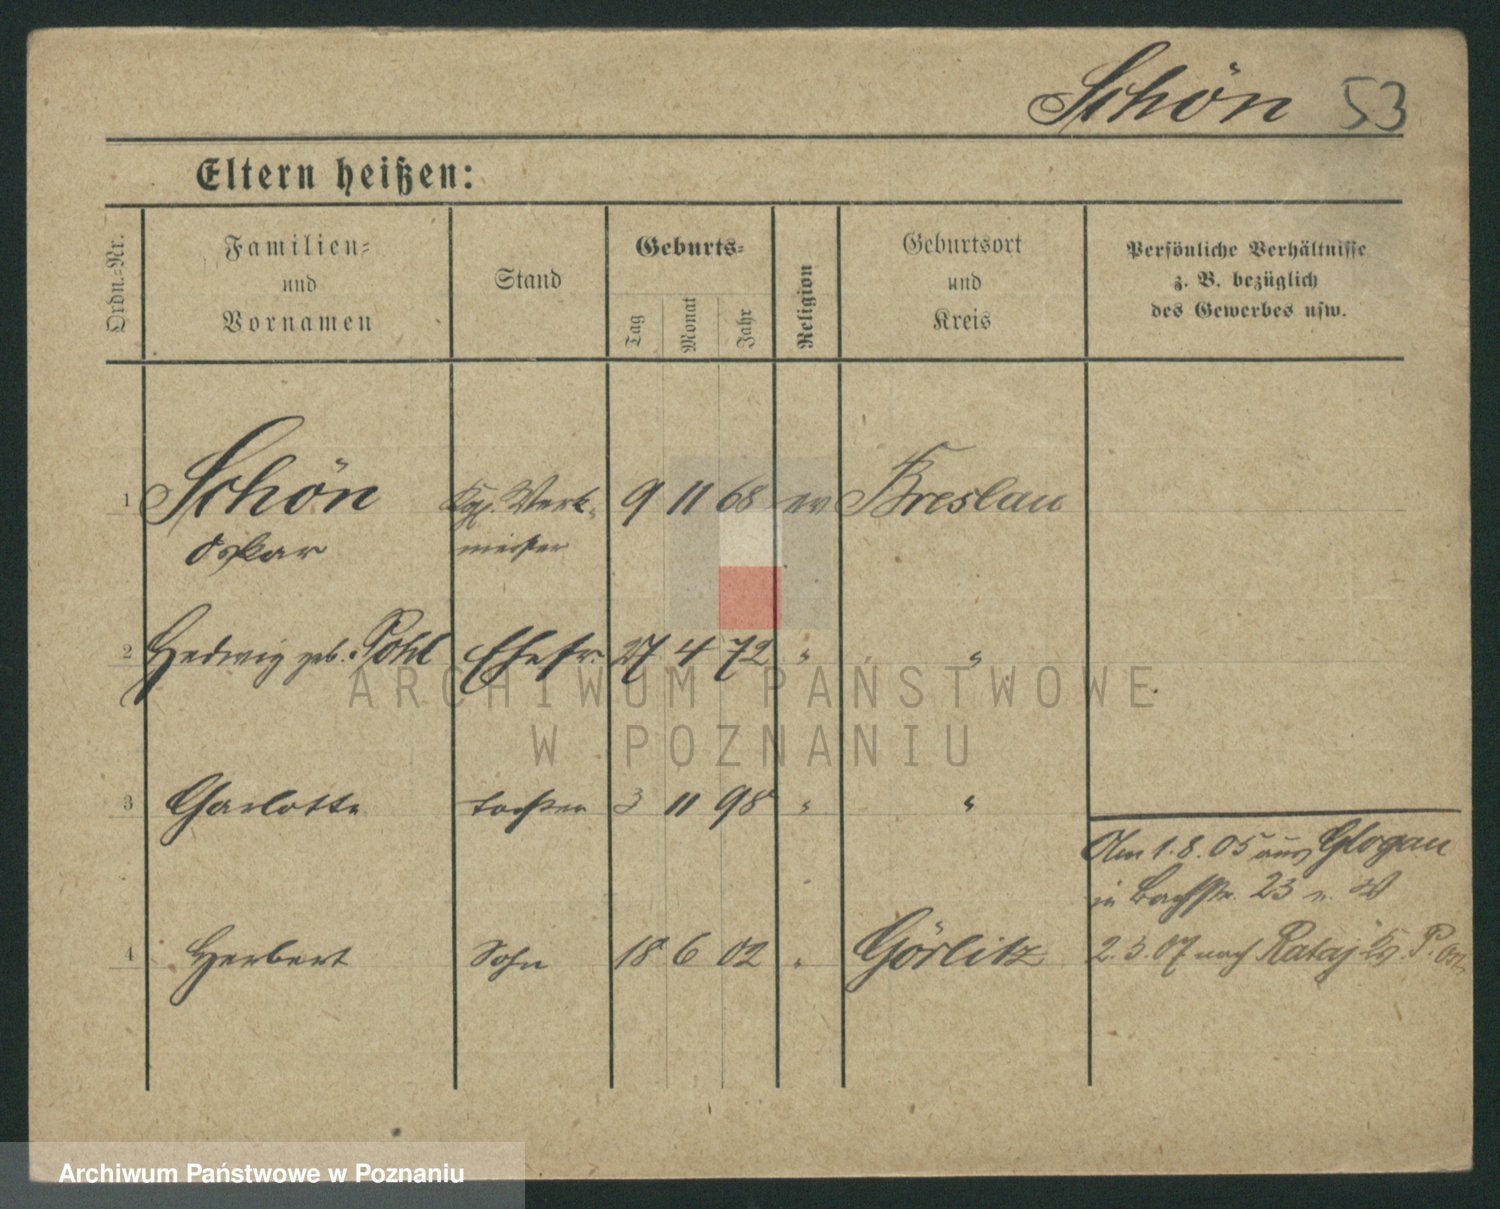 Schön 53
Eltern heißen:
Ordn.-Nr.
Familien-
und
Vornamen
Stand
Geburts-
Tag
Monat
Jahr
Religion
Geburtsort
und
Kreis
Persönliche Verhältnisse
z. B. bezüglich
des Gewerbes usw.
1 Schön Kgl. Werk- 9 11 68 ev Breslau
Oskar meister
2 Hedwig geb. Pohl Ehefr. 27 4 72 " "
3 Charlotte Tochter 3 11 98 " "
Am 1.8.05 aus Glogau
in Bachstr. 23
4 Herbert Sohn 18 6 02 " Görlitz 2.3.07 nach Rataj
ARCHIWUM PAŃSTWOWE
W POZNANIU
Archiwum Państwowe w Poznaniu